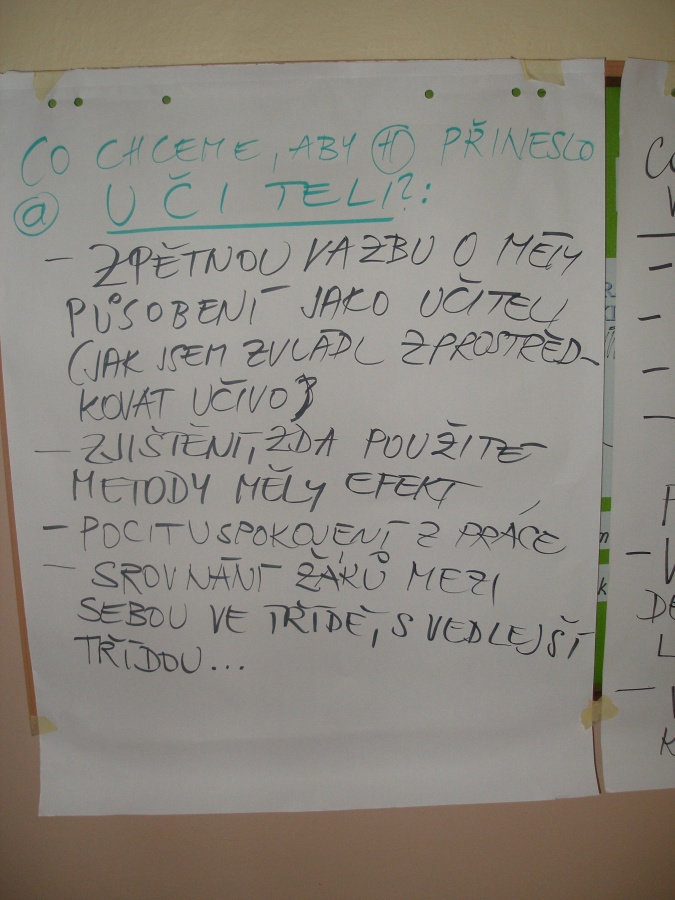 CO CHCEME, ABY H PŘINESLO
@ UČITELI?:
- ZPĚTNOU VAZBU O MÉM
PŮSOBENÍ JAKO UČITEL
(JAK JSEM ZVLÁDL ZPROSTŘED-
KOVAT UČIVO)
- ZJIŠTĚNÍ, ZDA POUŽITÉ
METODY MĚLY EFEKT
- POCIT USPOKOJENÍ Z PRÁCE
- SROVNÁNÍ ŽÁKŮ MEZI
SEBOU VE TŘÍDĚ, S VEDLEJŠÍ
TŘÍDOU...